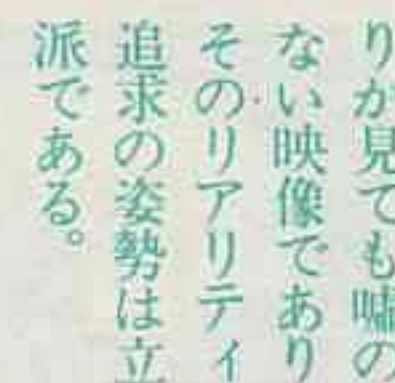 りが見ても嘘の
ない映像であり
そのリアリティ
追求の姿勢は立
派である。